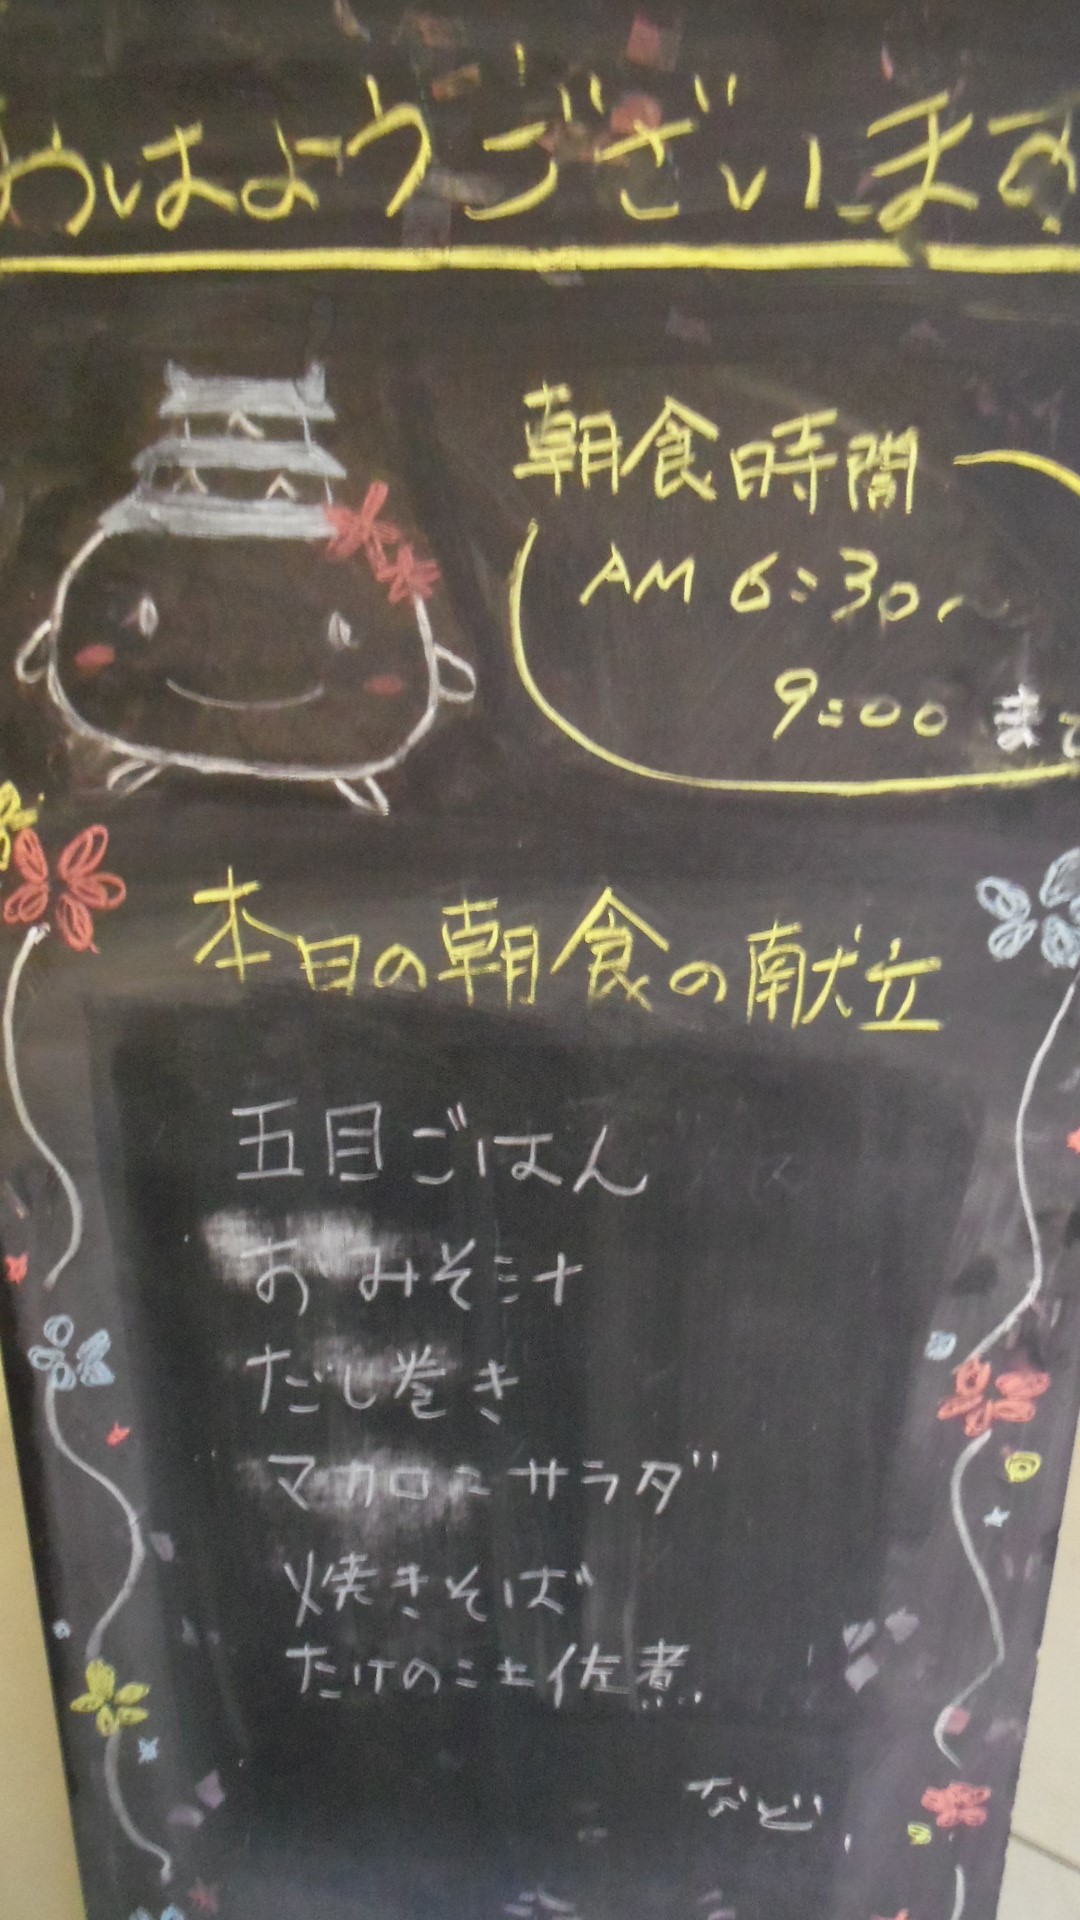 おはようございます
朝食時間
AM 6:30〜
9:00 まで
本日の朝食の献立
五目ごはん
おみそ汁
だし巻き
マカロニサラダ
焼きそば
たけのこ土佐煮
など